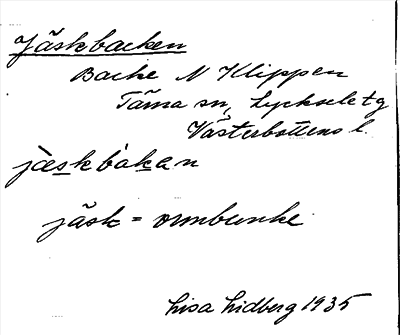 Jäskbacken
Backe N Klippen
Tärna sn, Lycksele tg
Västerbottens l.
jæskbakan
jäsk = ormbunke
Lisa Lidberg 1935